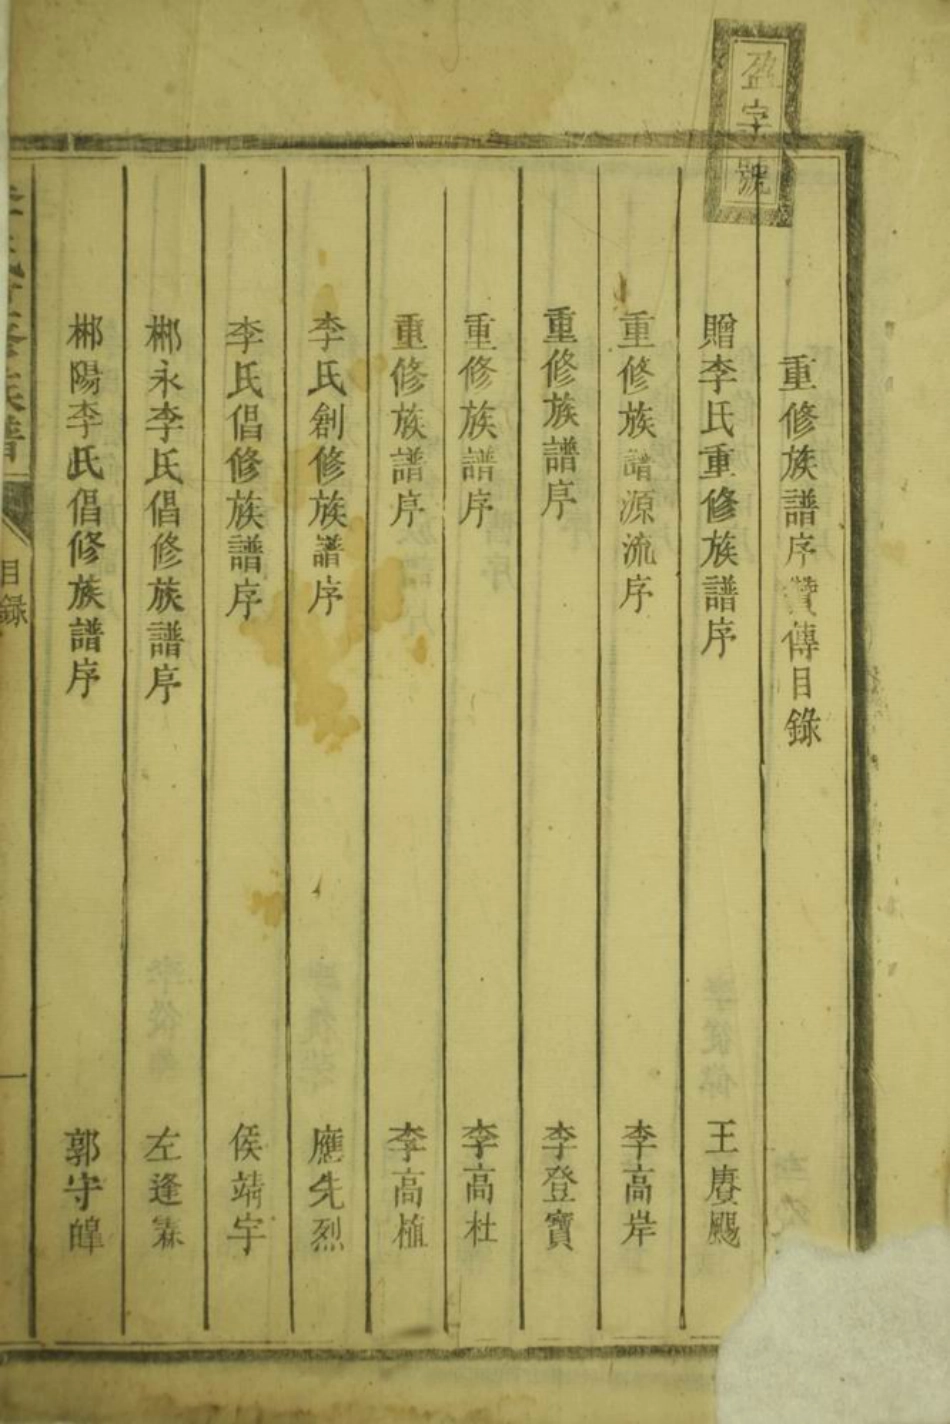 盈字號
重修族譜序贊傳目錄
贈李氏重修族譜序 王賡颺
重修族譜源流序 李高岸
重修族譜序 李登寶
重修族譜序 李高杜
重修族譜序 李高植
李氏創修族譜序 應先烈
李氏倡修族譜序 侯靖宇
郴永李氏倡修族譜序 左逢霖
郴陽李氏倡修族譜序 郭守皡
目錄
一